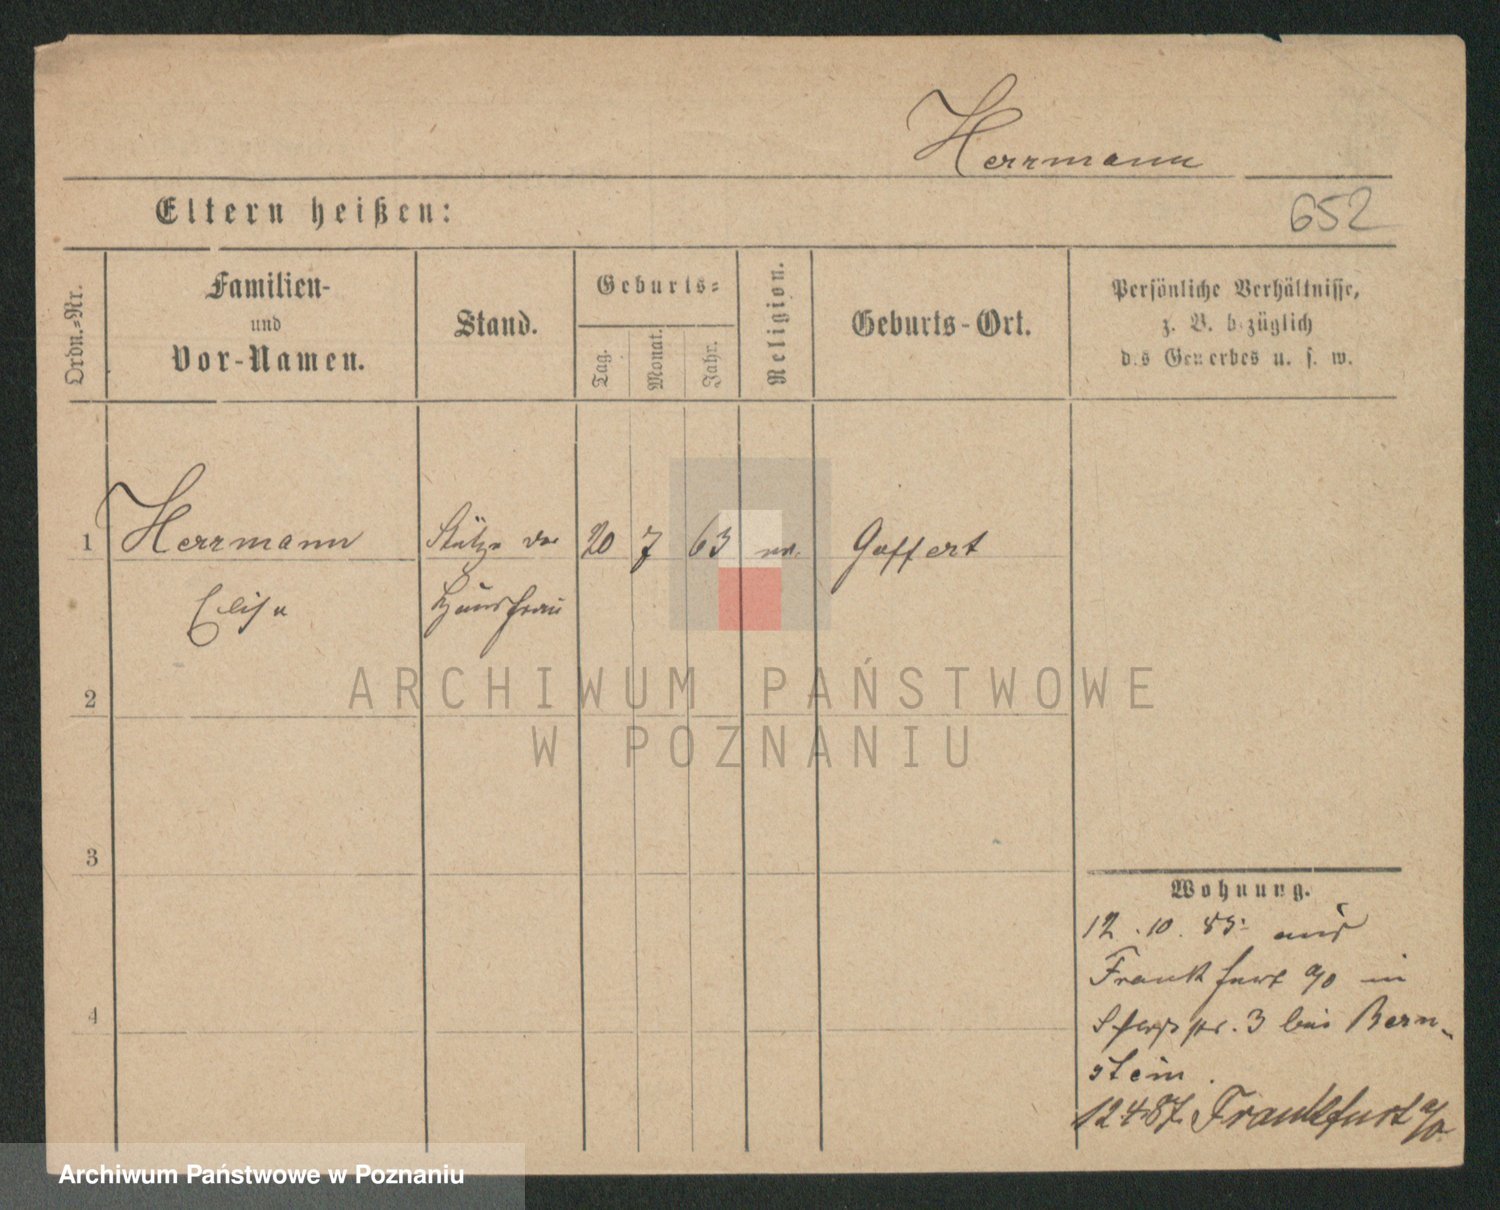 Herrmann
Eltern heißen:
652
Ordn.=Nr.
Familien-
und
Vor-Namen.
Stand.
Geburts=
Tag.
Monat.
Jahr.
Religion.
Geburts-Ort.
Persönliche Verhältnisse,
z. B. bezüglich
des Gewerbes u. s. w.
1
Herrmann
Stütze der
20
7
63
Elise
Hausfrau
2
3
4
Wohnung.
12.10. 85: aus
Frankfurt a/O in
3 bei Bern-
stein.
12.4.87. Frankfurt a/O.
ARCHIWUM PAŃSTWOWE
W POZNANIU
Archiwum Państwowe w Poznaniu